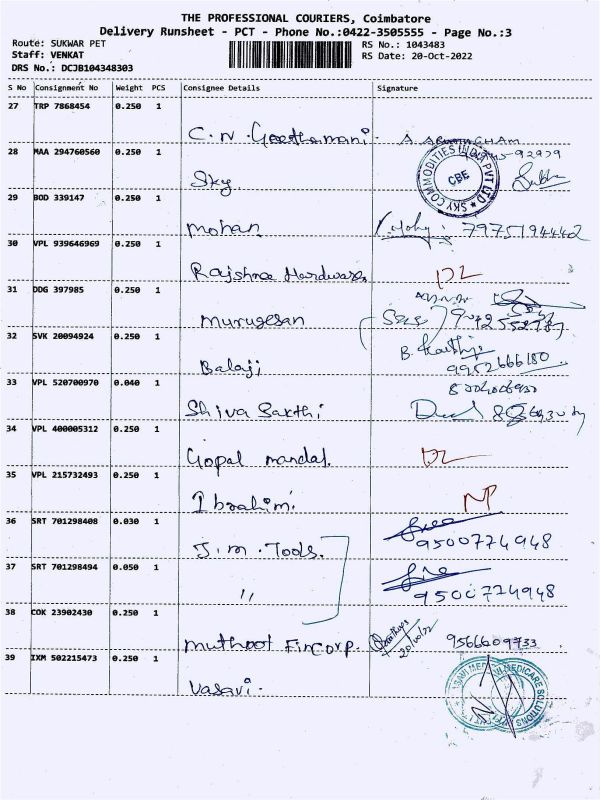 THE PROFESSIONAL COURIERS, Coimbatore
Delivery Runsheet - PCT - Phone No.:0422-3505555 - Page No.:3
Route: SUKWAR PET
RS No.: 1043483
Staff: VENKAT
RS Date: 20-Oct-2022
DRS No.: DCJB104348303
S No Consignment No Weight PCS Consignee Details Signature
27 TRP 7868454 0.250 1
C. N. Geethamani.
28 MAA 294760560 0.250 1
Sky
SKY COMMODITIES INDIA PVT LTD
CBE
29 BOD 339147 0.250 1
mohan
7975194442
30 VPL 939646969 0.250 1
Rajshree Hardwares
DL
31 DDG 397985 0.250 1
murugesan
32 SVK 20094924 0.250 1
Balaji
9952666180
33 VPL 520700970 0.040 1
Shiva Sakthi
34 VPL 400005312 0.250 1
Gopal mandal.
DL
35 VPL 215732493 0.250 1
Ibrahim.
NP
36 SRT 701298408 0.030 1
J. m. Tools.
9500774948
37 SRT 701298494 0.050 1
"
9500774948
38 COK 23902430 0.250 1
muthoot Fincorp.
20/10/22
9566609733.
39 IXM 502215473 0.250 1
Vasavi.